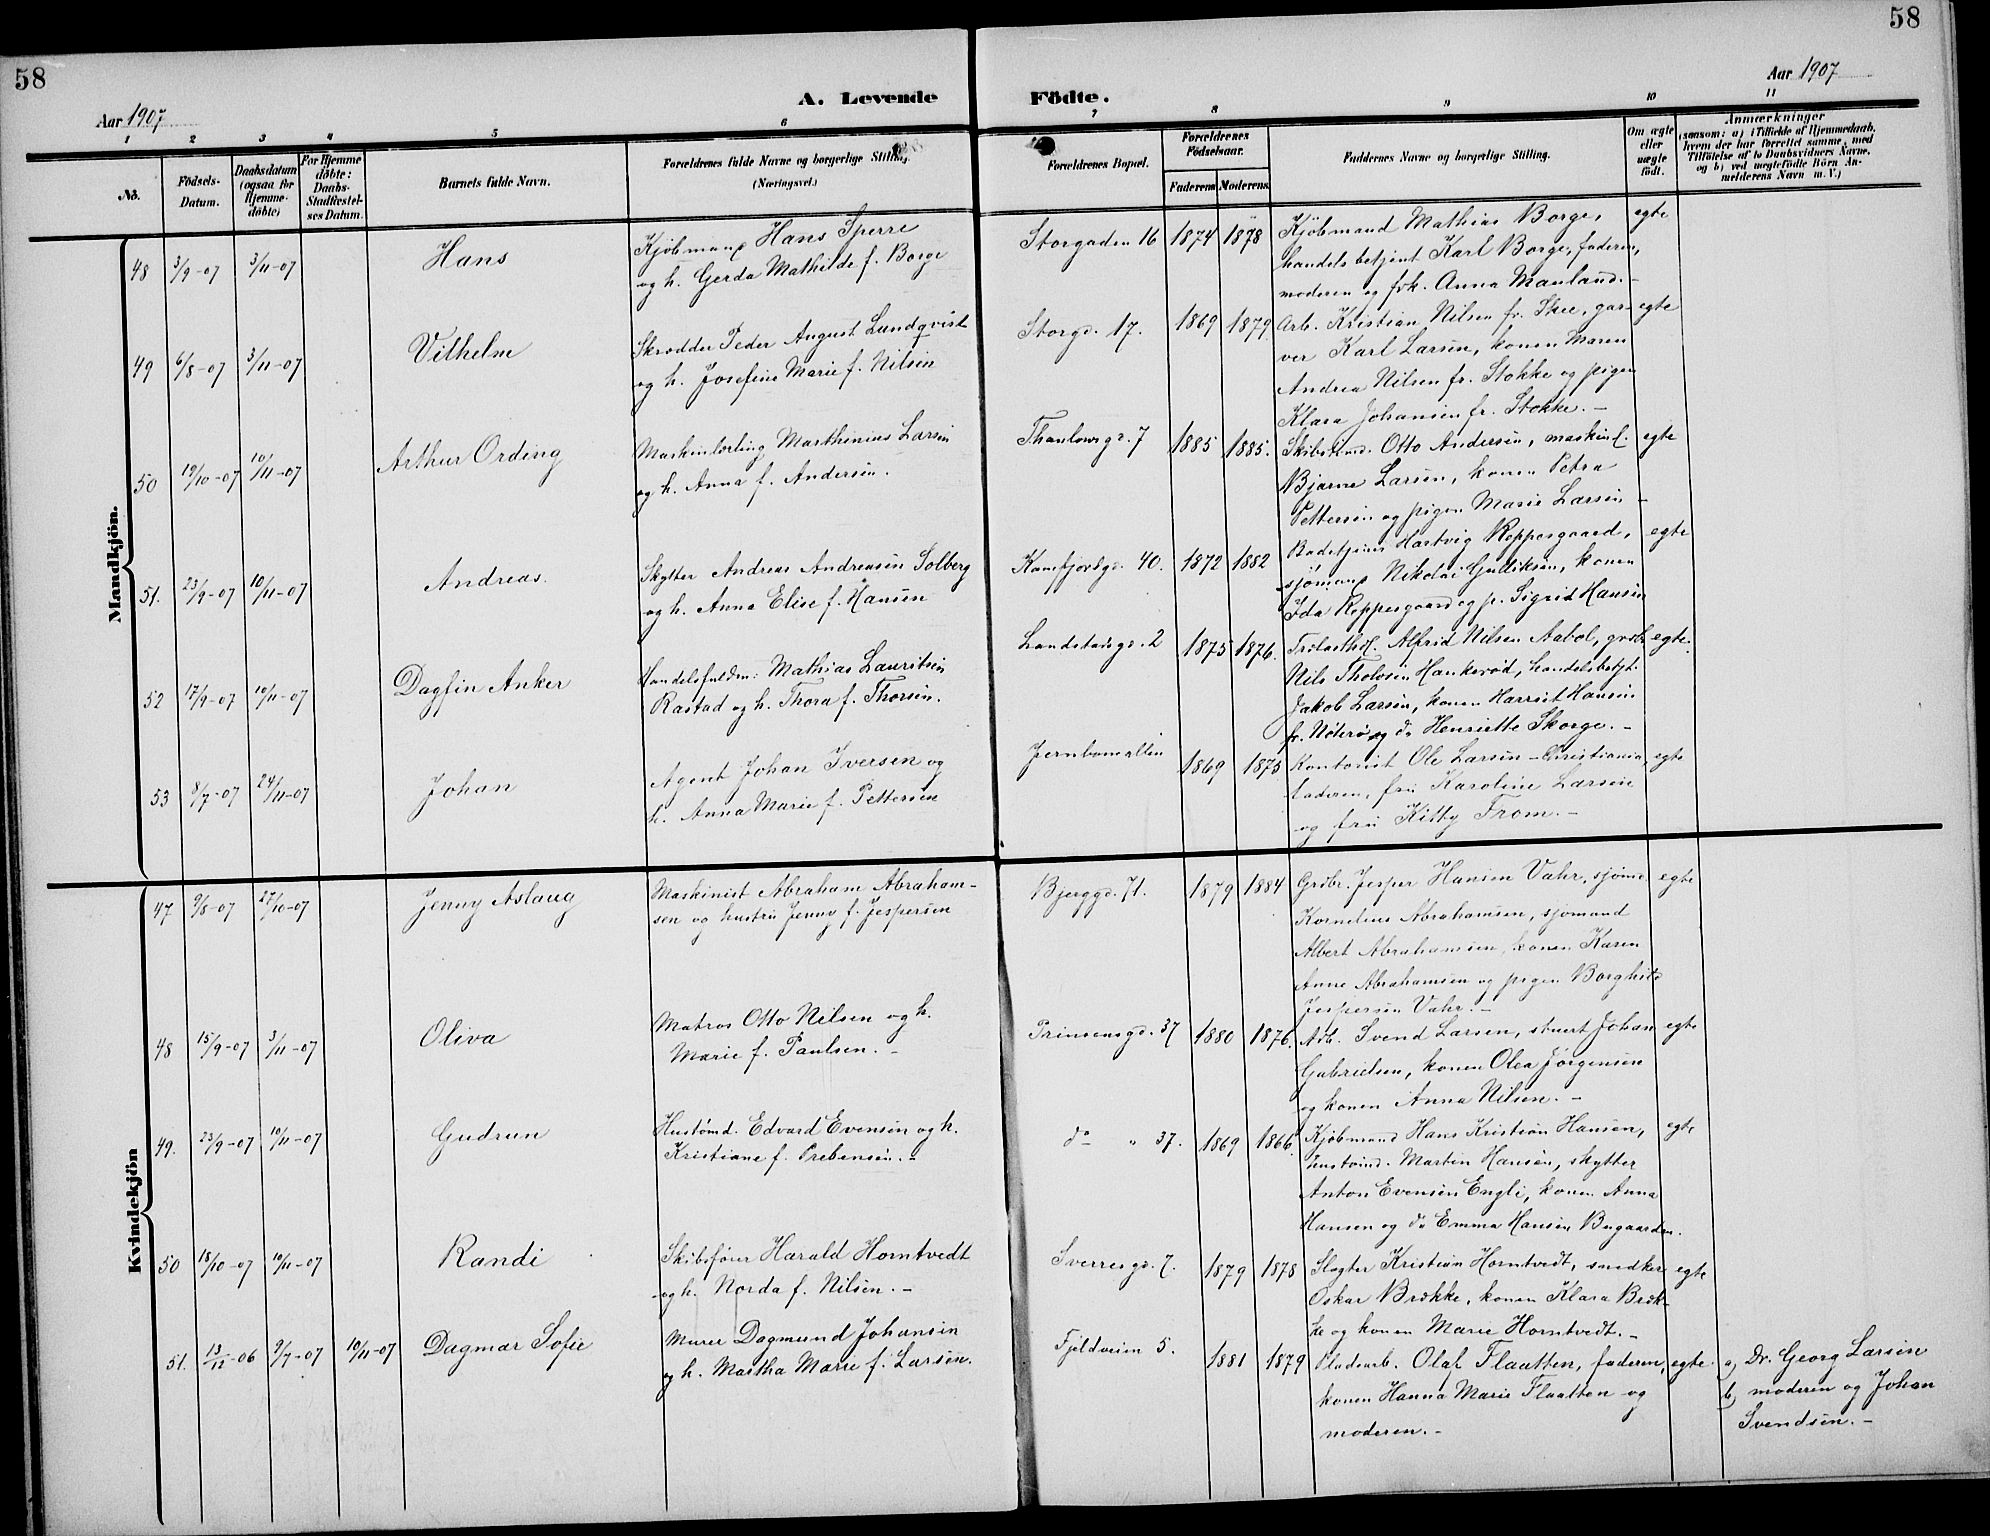 58
58
Aar 1907
A. Levende
Födte.
Aar 1907
1 2 3 4 5 6 7 8 9 10 11
No.
Födsels-
Datum.
Daabsdatum
(ogsaa for
Hjemme-
döbte)
For Hjemme
döbte:
Daabs-
Stadfæstel-
ses Datum.
Barnets fulde Navn.
Forældrenes fulde Navne og borgerlige Stilling.
(Næringsvei.)
Forældrenes Bopæl.
Forældrenes
Födselsaar.
Faderens Moderens
Faddernes Navne og borgerlige Stilling.
Om ægte
eller
uægte
födt.
Anmærkninger
(saasom: a) i Tilfælde af Hjemmedaab,
hvem der har forrettet samme, med
Tilföielse af to Daabsvidners Navne,
og b) ved uegtefödte Börn An-
melderens Navn m. V.)
Mandkjön.
48 3/9-07 3/11-07 Hans
Kjöbmand Hans Sperre
og h. Gerda Mathilde f. Borge
Storgaden 16 1874 1878
Kjöbmand Mathias Borge, egte
handelsbetjent Karl Borge, faderen,
moderen og frk. Anna Manland.-
49 6/8-07 3/11-07 Vilhelm
Skrædder Peder August Lundqvist
og h. Josefine Marie f. Nilsen
Storgd. 17. 1869 1879
Arb. Kristian Nilsen fr. Skee, gar- egte
ver Karl Larsen, konen Maren
Andrea Nilsen fr. Stokke og pigen
Klara Johansen fr. Stokke.-
50 19/10-07 10/11-07 Arthur Ording
Maskinlærling Marthinius Larsen
og h. Anna f. Andersen.
Thaulowsgd. 7 1885 1885.
Skibstømd. Otto Andersen, maskinl. egte
Bjarne Larsen, konen Petra
Pettersen og pigen Marie Larsen -
51. 23/9-07 10/11-07 Andreas.
Skytter Andreas Andreasen Solberg
og h. Anna Elise f. Hansen
Kamfjordgd. 40. 1872 1882
Badetjener Hartvig Roppesgaard, egte
sjömand Nikolai Gulliksen, konen
Ida Roppesgaard og p. Sigrid Hansen
52 17/9-07 10/11-07 Dagfin Anker
Handelsfuldm. Mathias Lauritsen
Rastad og h. Thora f. Thorsen.
Landstadsgd. 2 1875 1876.
Trælasthdl. Alfred Nilsen Aabol, grdbr. egte.
Nils Tholvsen Haukerød, handelsbetjt.
Jakob Larsen, konen Harriet Hansen
fr. Nöterö og do Henriette Skorge.-
53 8/7-07 24/11-07 Johan
Agent Johan Iversen og
h. Anna Marie f. Pettersen
Jernbanealleen 1869 1875
Kontorist Ole Larsen - Christiania, egte
faderen, fru Karoline Larsen
og fru Kitty From.-
Kvindekjön
47 9/8-07 27/10-07 Jenny Aslaug
Maskinist Abraham Abraham-
sen og hustru Jenny f. Jespersen
Bjerggd. 71. 1879 1884
Grdbr. Jesper Hansen Vahr, sjömd egte
Kornelius Abrahamsen, sjömand
Albert Abrahamsen, konen Karen
Anne Abrahamsen og pigen Borghild
Jespersen Vahr.-
48 15/9-07 3/11-07 Oliva
Matros Otto Nilsen og h.
Marie f. Paulsen.-
Prinsensgd. 37 1880 1876.
Arb. Svend Larsen, stuert Johan egte
Gabrielsen, konen Olea Jörgensen
og konen Anna Nilsen.-
49. 23/9-07 10/11-07 Gudrun
Hustömd. Edvard Evensen og h.
Kristiane f. Prebensen.-
do " 37. 1869 1866.
Kjöbmand Hans Kristian Hansen, egte
hustömd. Martin Hansen, skytter
Anton Evensen Engli, konen Anna
Hansen og do Emma Hansen Bugaarden.
50 18/10-07 10/11-07 Randi
Skibsförer Harald Horntvedt
og h. Norda f. Nilsen.-
Sverresgd. 7. 1879 1878
Slagter Kristian Horntvedt, snedker egte
Oskar Brække, konen Klara Bræk-
ke og konen Marie Horntvedt.-
51. 13/12-06 9/7-07 10/11-07 Dagmar Sofie
Murer Dagmund Johansen
og h. Martha Marie f. Larsen.
Fjeldveien 5. 1881 1879
Pladearb. Olaf Flaatten, faderen, egte.
konen Hanna Marie Flaatten og
moderen.-
a) Dr. Georg Larsen
b) moderen og Johan
Svendsen.-